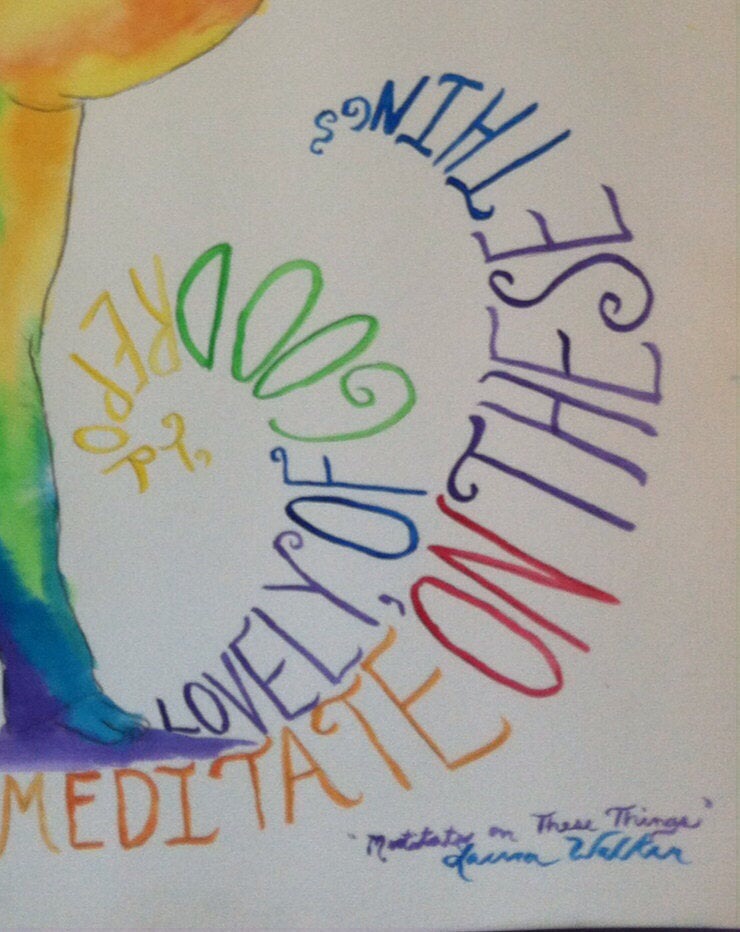 LOVELY, OF GOOD REPORT,
MEDITATE ON THESE THINGS
"Meditate on These Things"
Walker